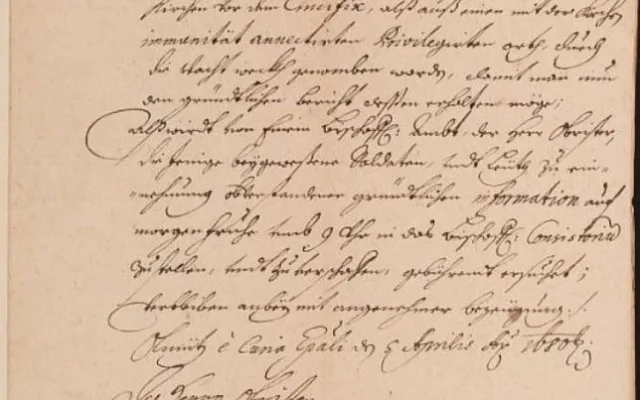 Kirchen vor dem Crucifix, alß auß einen mit der Kirchen
immunität annectirten Privilegirten orth, durch
die Wacht weckh genomben worden, damit man nun
den gründtlichen bericht dessen erhalten möge;
alß wirdt von Einem Bischoffl: Ambt, der Herr Obrister,
die jenige beygewesene Soldaten, undt Leüth zu ein=
=nehmung obverstandener gründtlichen information auf
morgen fruhe umb 9 Uhr in das Bischoffl: Consistorium
zu stellen, undt zu verschaffen, gebührendt ersuchet;
Verbleiben anbey mit angenehmer bezeügung ./.
Olmütz è Curia Epali den 5 Aprilis
Herrn Obristen